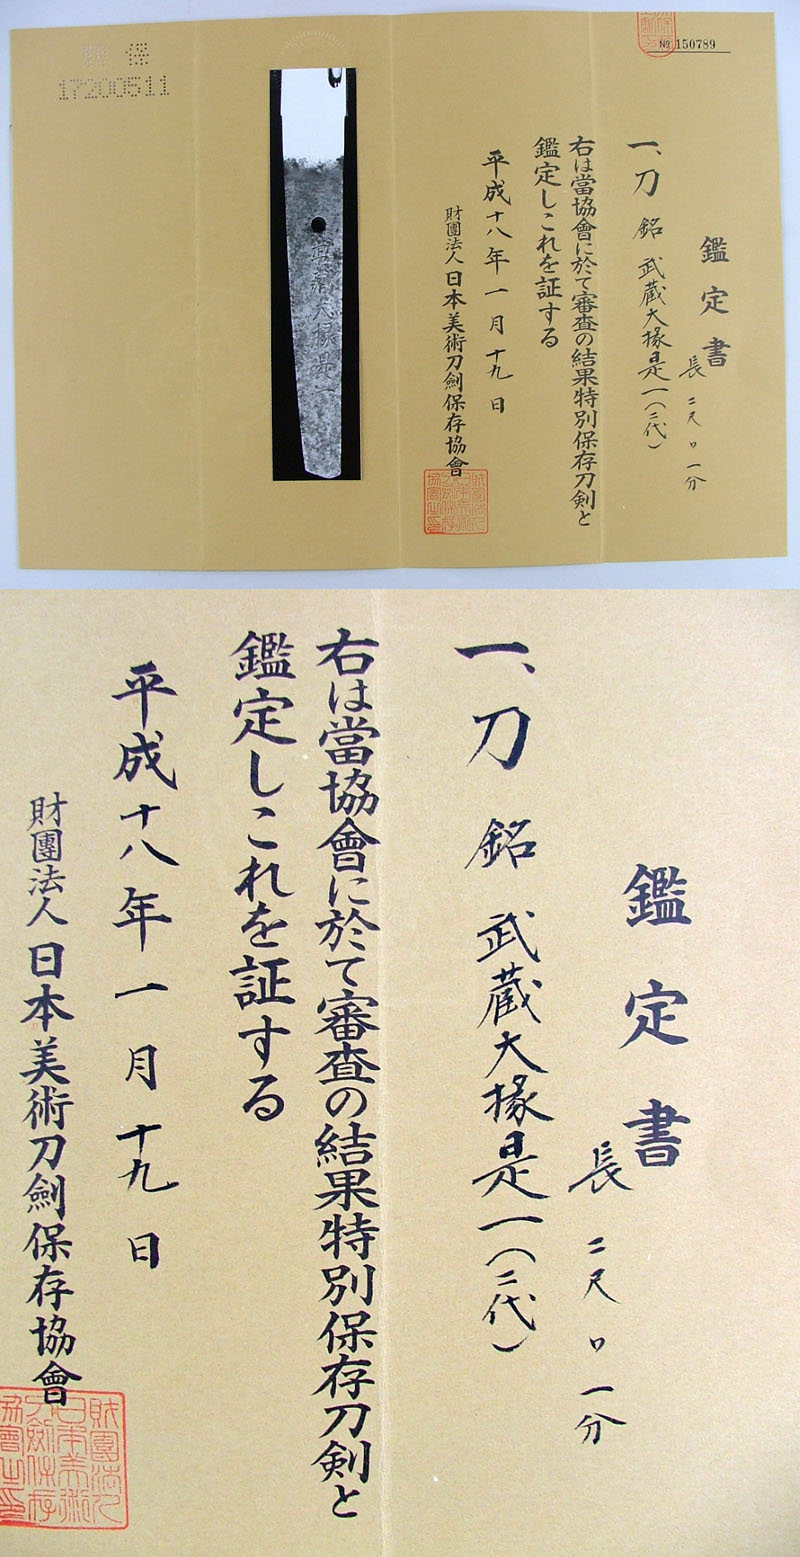 特保
17200511
№ 150789
鑑定書
長 二尺〇一分
一、刀 銘 武蔵大掾是一(二代)
右は當協會に於て審査の結果特別保存刀剣と
鑑定しこれを証する
平成十八年一月十九日
財團法人日本美術刀劍保存協會
武蔵大掾是一
鑑定書
長 二尺〇一分
一、刀 銘 武蔵大掾是一(二代)
右は當協會に於て審査の結果特別保存刀剣と
鑑定しこれを証する
平成十八年一月十九日
財團法人日本美術刀劍保存協會